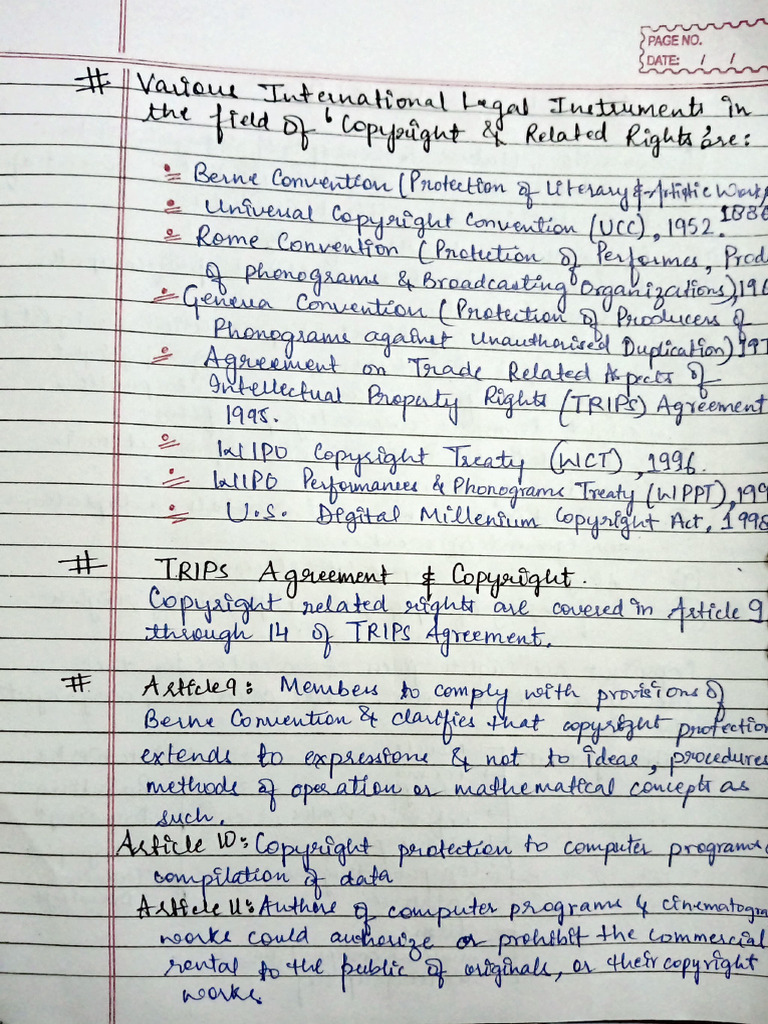 PAGE NO.
DATE: / /
# Various International Legal Instruments in
the field of Copyright & Related Rights are:
Berne Convention (Protection of Literary & Artistic Work
1886
Universal Copyright Convention (UCC), 1952.
Rome Convention (Protection of Performes, Prod
of phonograms & Broadcasting Organizations), 196
Geneva Convention (Protection of Producers of
Phonograms against Unauthorised Duplication) 197
Agreement on Trade Related Aspects of
Intellectual Property Rights (TRIPs) Agreement
1995.
WIPO Copyright Treaty (WCT), 1996.
WIPO Performances & Phonograms Treaty (WPPT), 199
U.S. Digital Millenium Copyright Act, 1998
# TRIPS Agreement & Copyright.
Copyright related rights are covered in Article 9
through 14 of TRIPs Agreement.
# Article 9: Members to comply with provisions of
Berne Convention & clarifies that copyright protection
extends to expressions & not to ideas, procedures
methods of operation or mathematical concepts as
such.
Article 10: Copyright protection to computer programs
compilation of data
Article 11: Authors of computer programs & cinematogra
works could authorize or prohibit the commercial
rental to the public of originals, or their copyright
works.